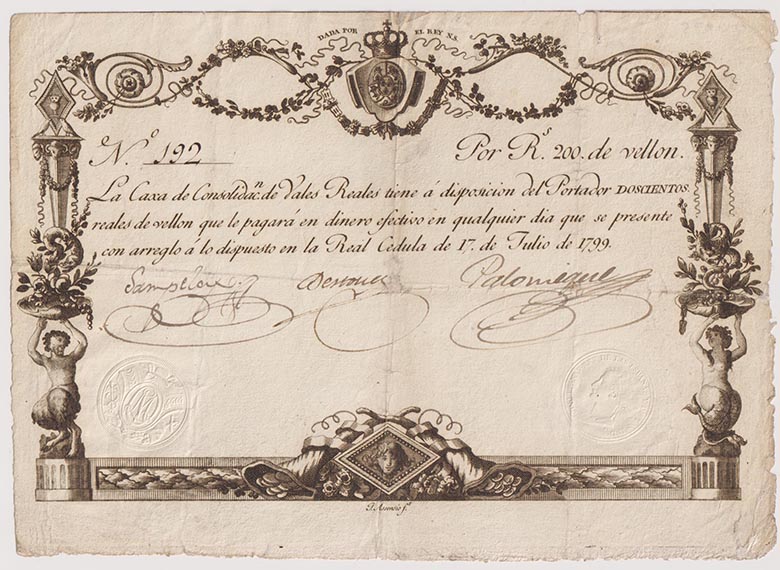 DADA POR EL REY N.S.
N.º 192
Por R.s 200. de vellon.
La Caxa de Consolidan. de Vales Reales tiene á disposicion del Portador DOSCIENTOS.
reales de vellon que le pagará en dinero efectivo en qualquier dia que se presente
con arreglo á lo dispuesto en la Real Cedula de 17. de Julio de 1799.